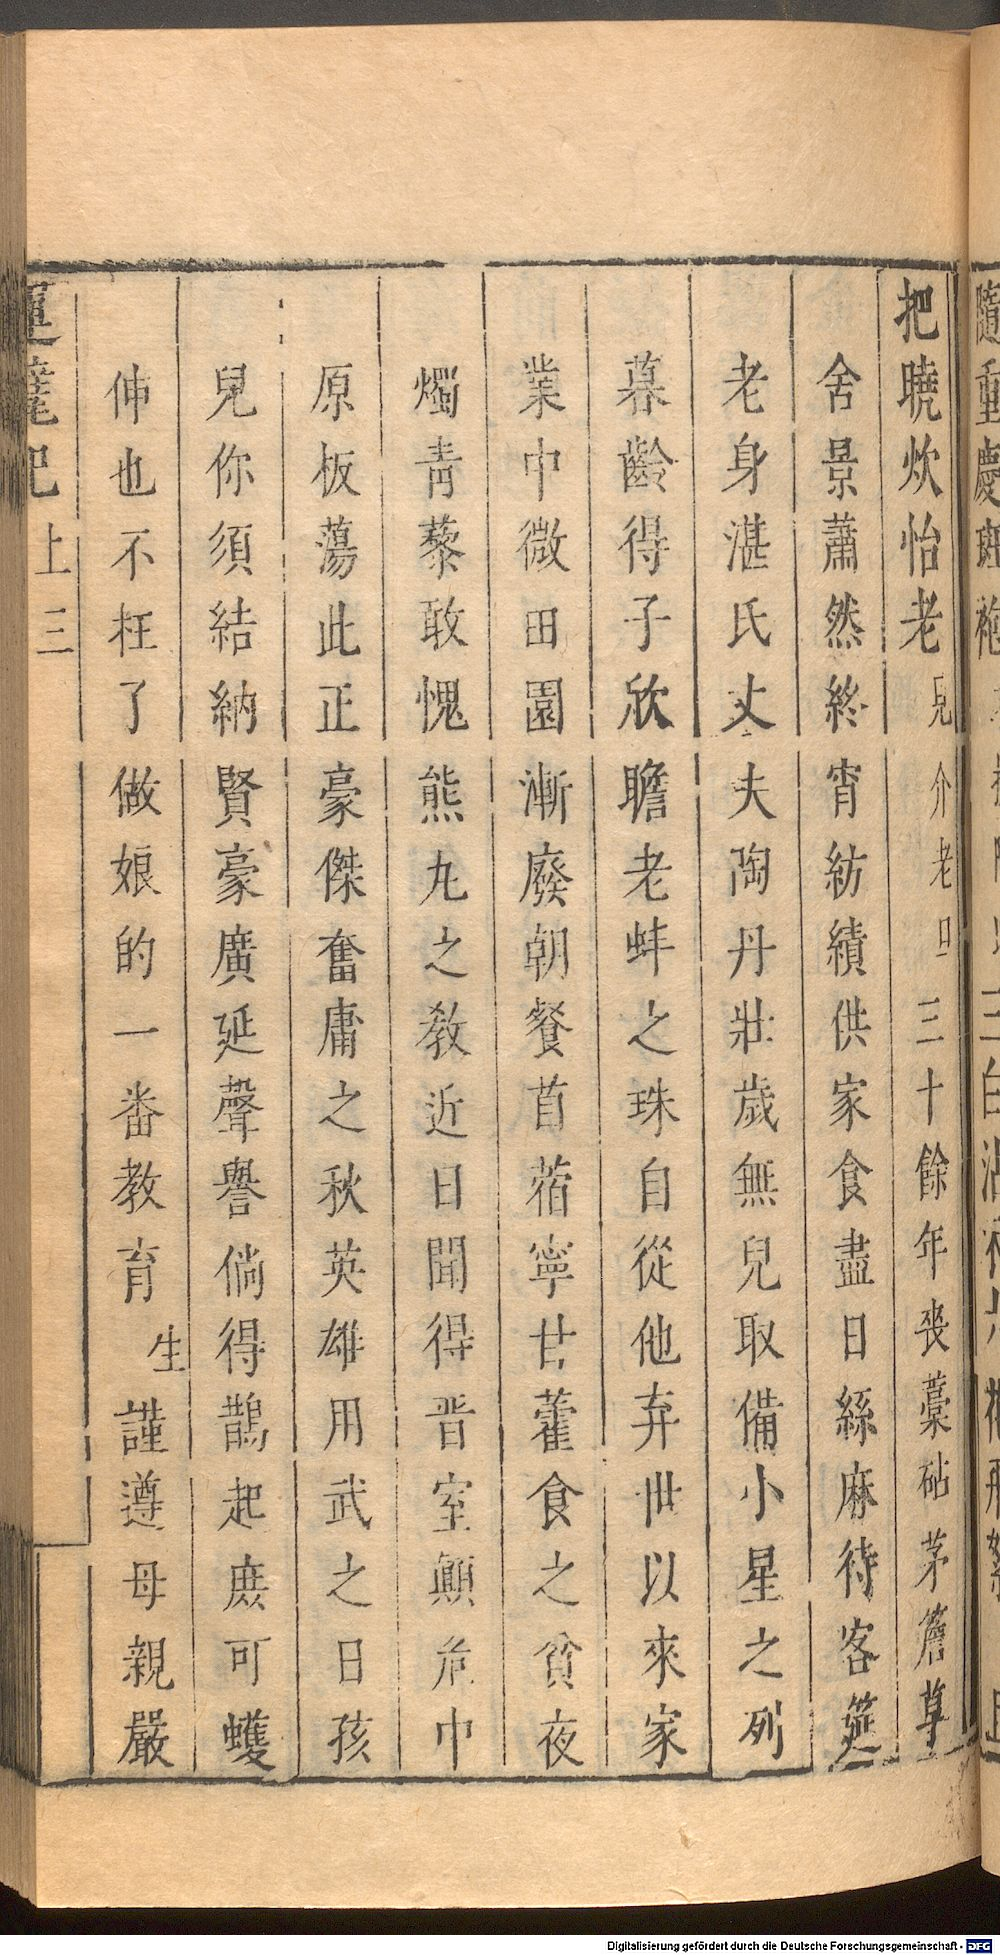 把曉炊怡老 見介老旦三十餘年喪藁砧茅簷草
舍景蕭然終宵紡績供家食盡日絲麻待客筵
老身湛氏丈夫陶丹壯歲無兒取備小星之列
暮齡得子欣瞻老蚌之珠自從他弃世以來家
業中微田園漸廢朝餐苜蓿寧甘藿食之貧夜
燭青藜敢愧熊丸之教近日聞得晋室顛危中
原板蕩此正豪傑奮庸之秋英雄用武之日孩
兒你須結納賢豪廣延聲譽倘得鵲起庶可蠖
伸也不枉了做娘的一番教育生謹遵母親嚴
運甓記 上 三
Digitalisierung gefördert durch die Deutsche Forschungsgemeinschaft - DFG